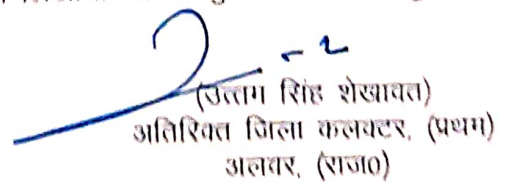 (उत्तम सिंह शेखावत)
अतिरिक्त जिला कलक्टर, (प्रथम)
अलवर, (राज0)